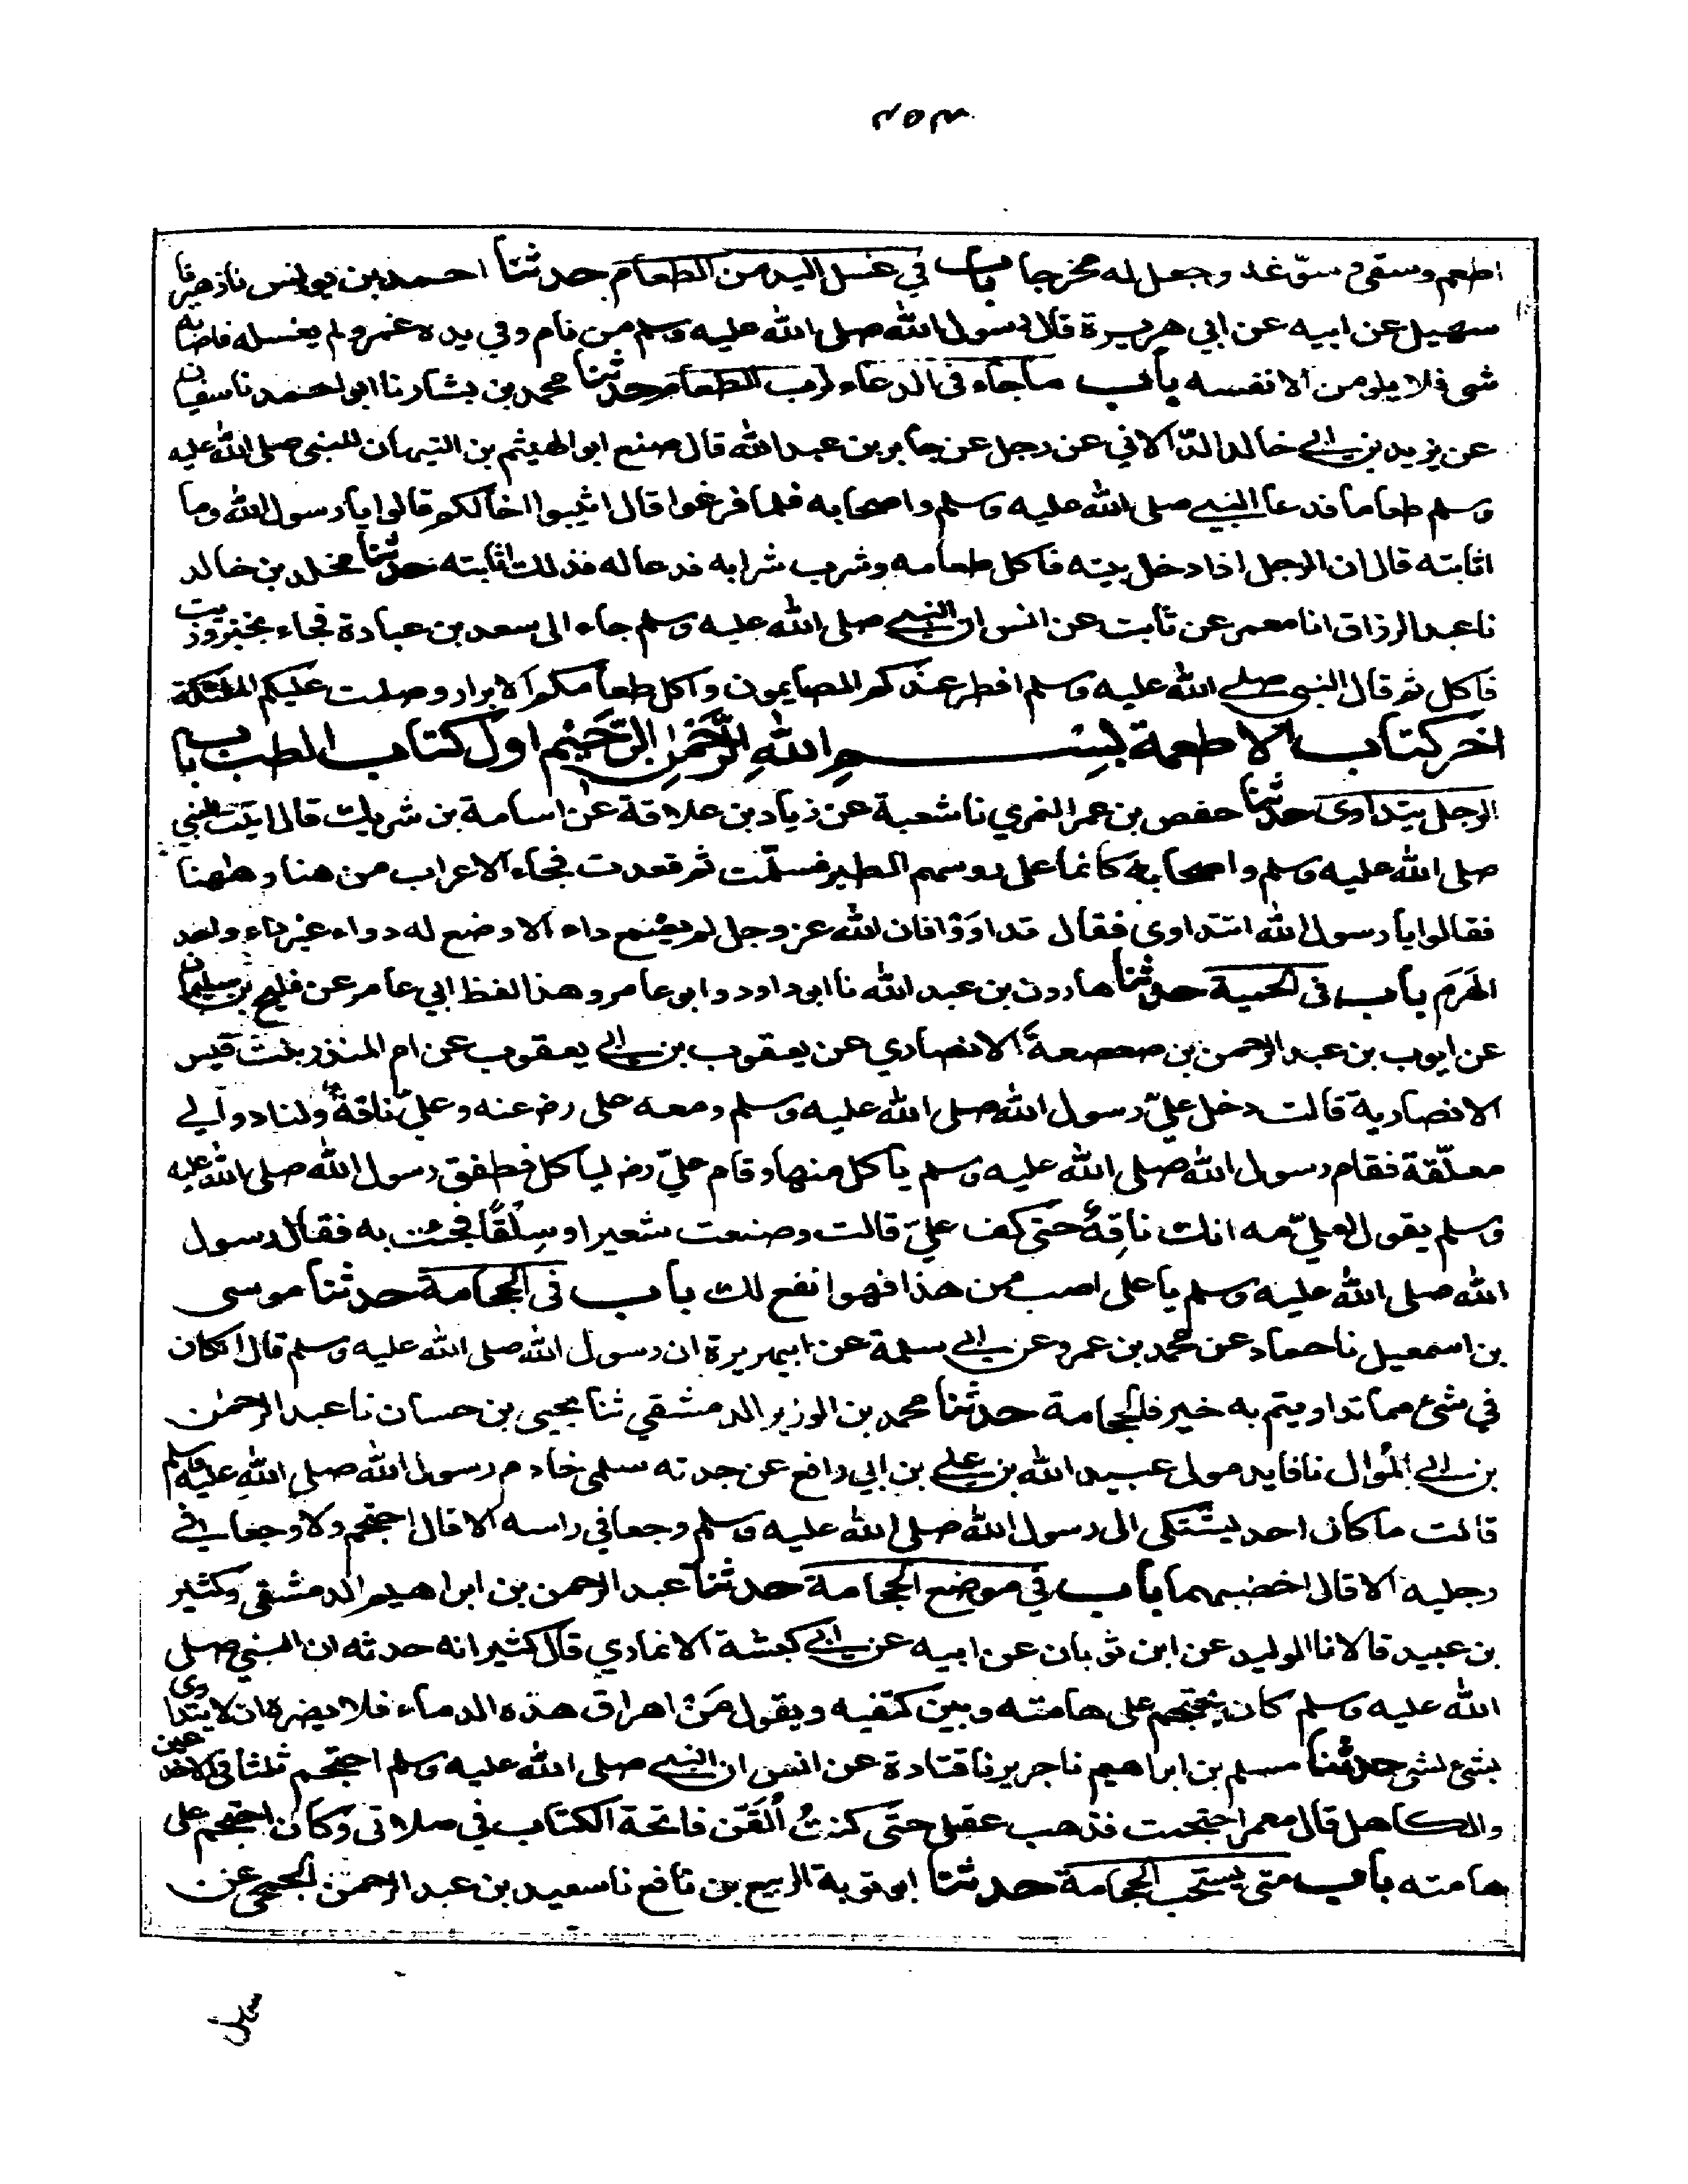 اطعم وسقى وسوّغه وجعل له مخرجا باب في غسل اليد من الطعام حدثنا احمد بن يونس نا زهير نا
سهيل عن ابيه عن ابي هريرة قال قال رسول الله صلى الله عليه وسلم من نام وفي يده غمر ولم يغسله فاصابه
شى فلا يلومن الا نفسه باب ما جاء فى الدعاء لرب الطعام حدثنا محمد بن بشار نا ابو احمد نا سفيان
عن يزيد بن ابي خالد الدّالاني عن رجل عن جابر بن عبد الله قال صنع ابو الهيثم بن التيهان للنبى صلى الله عليه
وسلم طعاما فدعا النبي صلى الله عليه وسلم واصحابه فلما فرغوا قال اثيبوا اخاكم قالوا يا رسول الله وما
اثابته قال ان الرجل اذا دخل بيته فاكل طعامه وشرب شرابه فدعا له فذلك اثابته حدثنا مخلد بن خالد
نا عبد الرزاق انا معمر عن ثابت عن انس ان النبي صلى الله عليه وسلم جاء الى سعد بن عبادة فجاء بخبز وزيت
فاكل ثم قال النبى صلى الله عليه وسلم افطر عندكم الصايمون واكل طعامكم الابرار وصلت عليكم الملئكة
اخر كتاب الاطعمة بِسْمِ اللهِ الرَّحْمٰنِ الرَّحَيْمِ اول كتاب الطب باب
الرجل يتداوى حدثنا حفص بن عمر النمري نا شعبة عن زياد بن علاقة عن اسامة بن شريك قال اتيت النبي
صلى الله عليه وسلم واصحابه كانما على روسهم الطير فسلّمت ثم قعدت فجاء الاعراب من هنا وههنا
فقالوا يا رسول الله انتداوى فقال تداوَوْا فان الله عز وجل لم يضع داء الا وضع له دواء غير داء واحد
الهَرَم باب فى الحمية حدثنا هارون بن عبد الله نا ابو داود وابو عامر وهذا لفظ ابي عامر عن فليح بن سليمان
عن ايوب بن عبد الرحمن بن صعصعة الانصاري عن يعقوب بن ابي يعقوب عن ام المنذر بنت قيس
الانصارية قالت دخل عليّ رسول الله صلى الله عليه وسلم ومعه على رض عنه وعليّ ناقةٌ ولنا دوالي
معلّقة فقام رسول الله صلى الله عليه وسلم ياكل منها وقام عليّ رض لياكل فطفق رسول الله صلى الله عليه
وسلم يقول لعليّ مه انك ناقِهٌ حتى كف عليّ قالت وصنعت شعيرا وسِلْقًا فجئت به فقال رسول
الله صلى الله عليه وسلم يا على اصب من هذا فهو انفع لك باب فى الحجامة حدثنا موسى
بن اسمعيل نا حماد عن محمد بن عمرو عن ابي سلمة عن ابيهريرة ان رسول الله صلى الله عليه وسلم قال ان كان
في شئ مما تداويتم به خير فالحجامة حدثنا محمد بن الوزير الدمشقي ثنا يحيى بن حسان نا عبد الرحمٰن
بن ابي المُوال نا فايد مولى عبيد الله بن علي بن ابي رافع عن جدته سلمى خادم رسول الله صلى الله عليه وسلم
قالت ما كان احد يشتكى الى رسول الله صلى الله عليه وسلم وجعا في راسه الا قال احتجم ولا وجعا في
رجليه الا قال اخضبهما باب في موضع الحجامة حدثنا عبد الرحمن بن ابراهيم الدمشقى وكثير
بن عبيد قالا نا الوليد عن ابن ثوبان عن ابيه عن ابي كبشة الانماري قال كثير انه حدثه ان النبي صلى
الله عليه وسلم كان يحتجم على هامته وبين كتفيه ويقول مَنْ اهراق هذه الدماء فلا يضره ان لا يتداوى
بشئ لشئ حدثنا مسلم بن ابراهيم نا جرير نا قتادة عن انس ان النبي صلى الله عليه وسلم احتجم ثلثا في الاخدعين
والكاهل قال معمر احتجمت فذهب عقلي حتى كنتُ اُلَقَّن فاتحة الكتاب في صلاتى وكان احتجم على
هامته باب متى يستحب الحجامة حدثنا ابو توبة الربيع بن نافع نا سعيد بن عبد الرحمن الجمحى عن